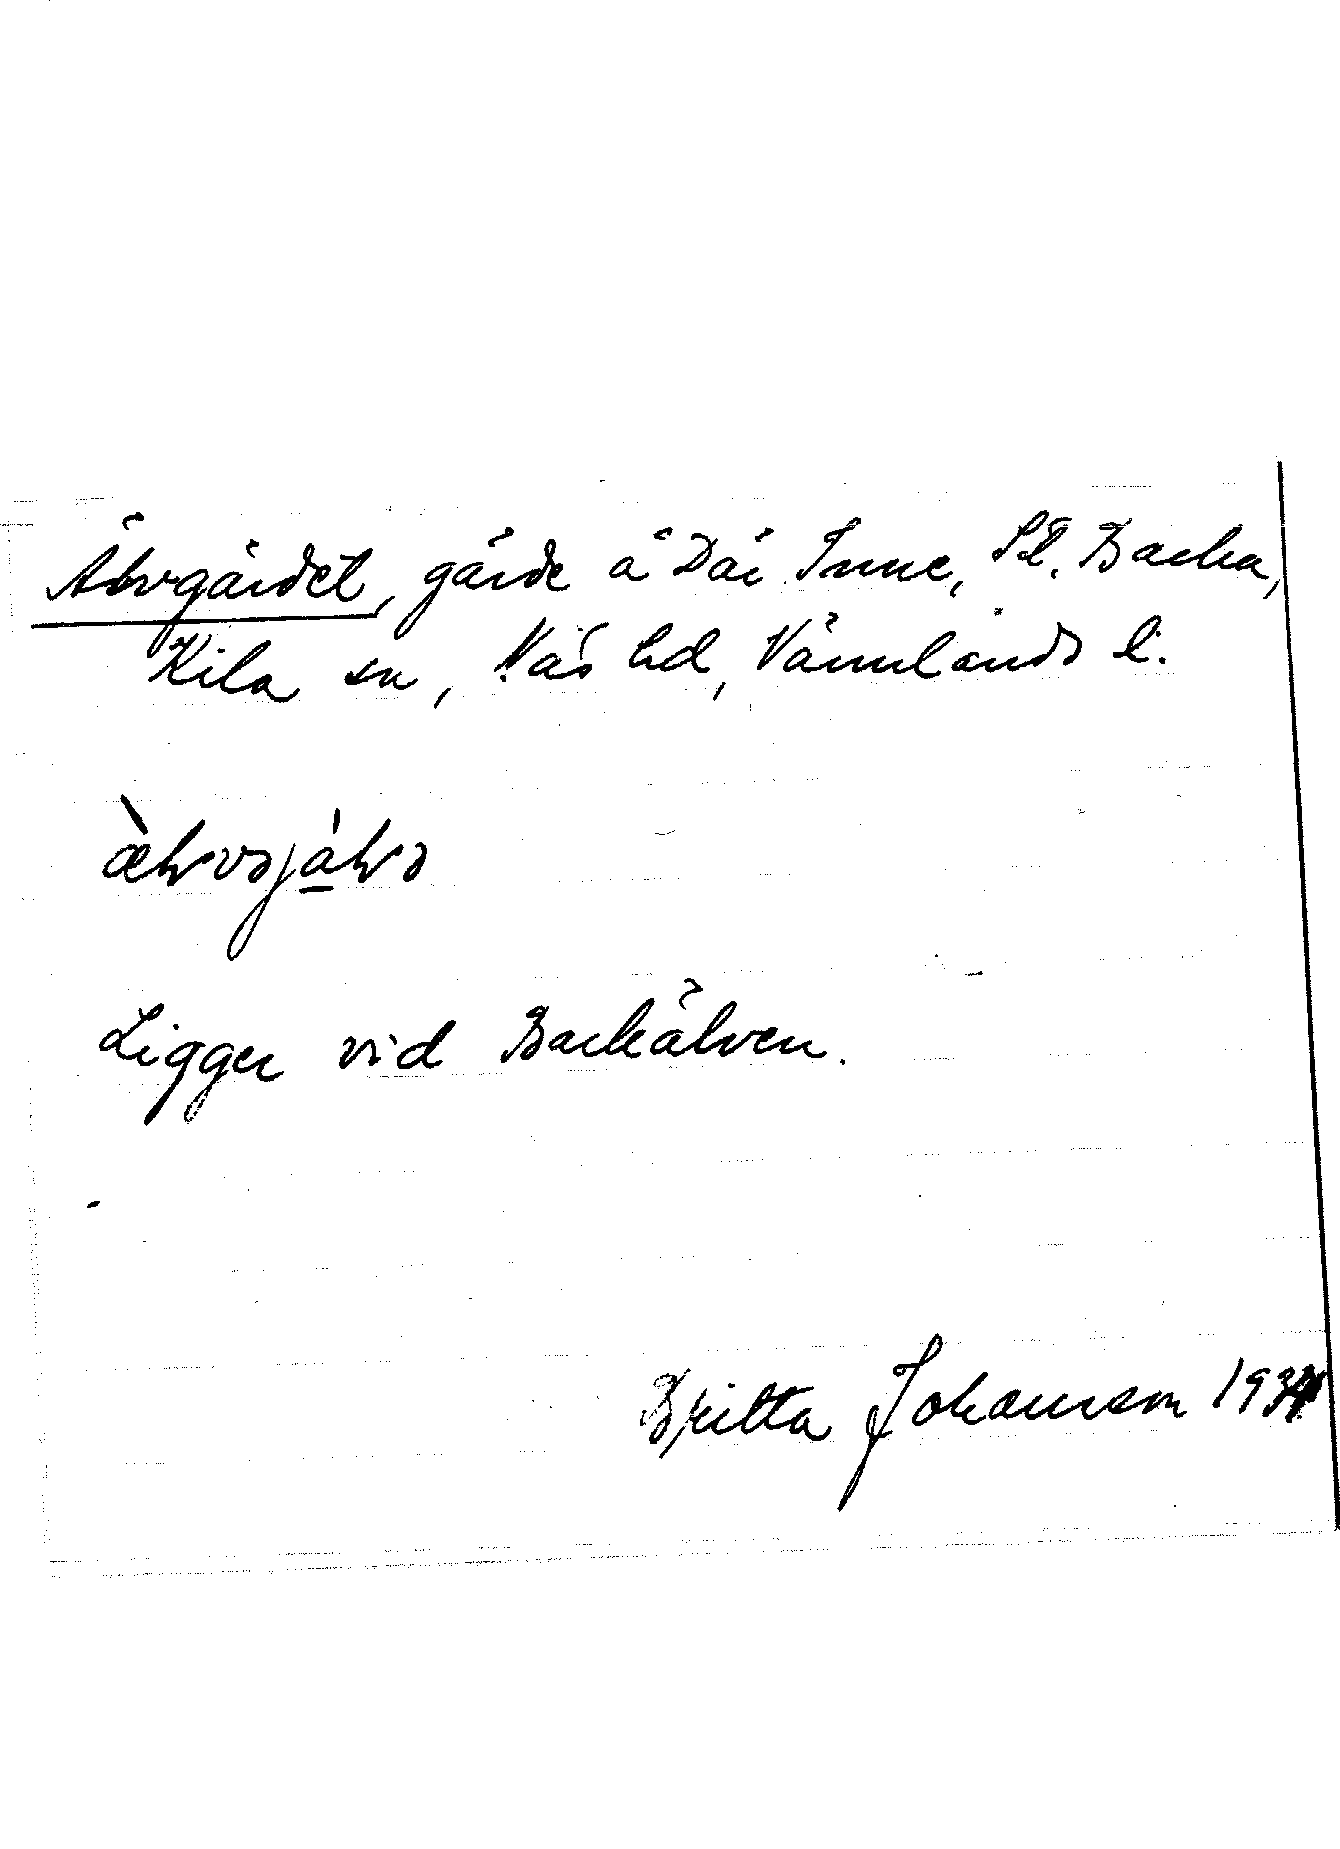 Älvgärdet, gärde å Där Inne, St. Backa,
Kila sn, Näs hd, Värmlands l.
Ligger vid Backälven.
Britta Johansson